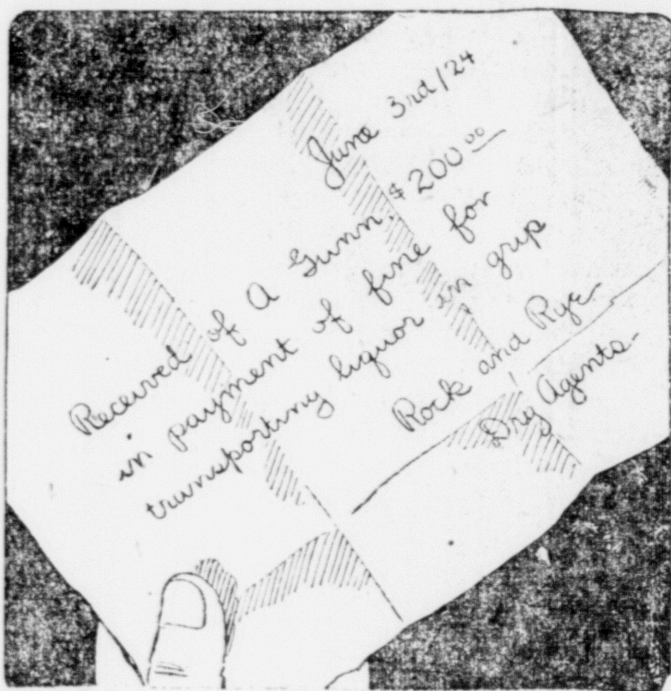 June 3rd/24
Received of A Gunn. $200.00
in payment of fine for
transporting liquor in grip
Rock and Rye
Dry Agents